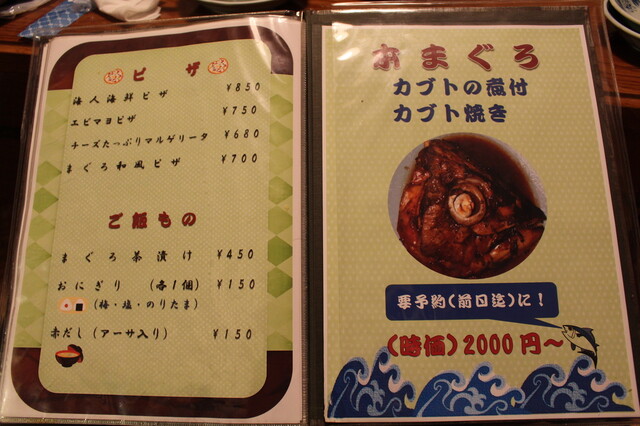 ピザ
海人海鮮ピザ ¥850
エビマヨピザ ¥750
チーズたっぷりマルゲリータ ¥680
まぐろ和風ピザ ¥700
ご飯もの
まぐろ茶漬け ¥450
おにぎり (各1個) ¥150
(梅・塩・のりたま)
赤だし(アーサ入り) ¥150
本まぐろ
カブトの煮付
カブト焼き
要予約(前日迄)に!
(時価)2000円〜